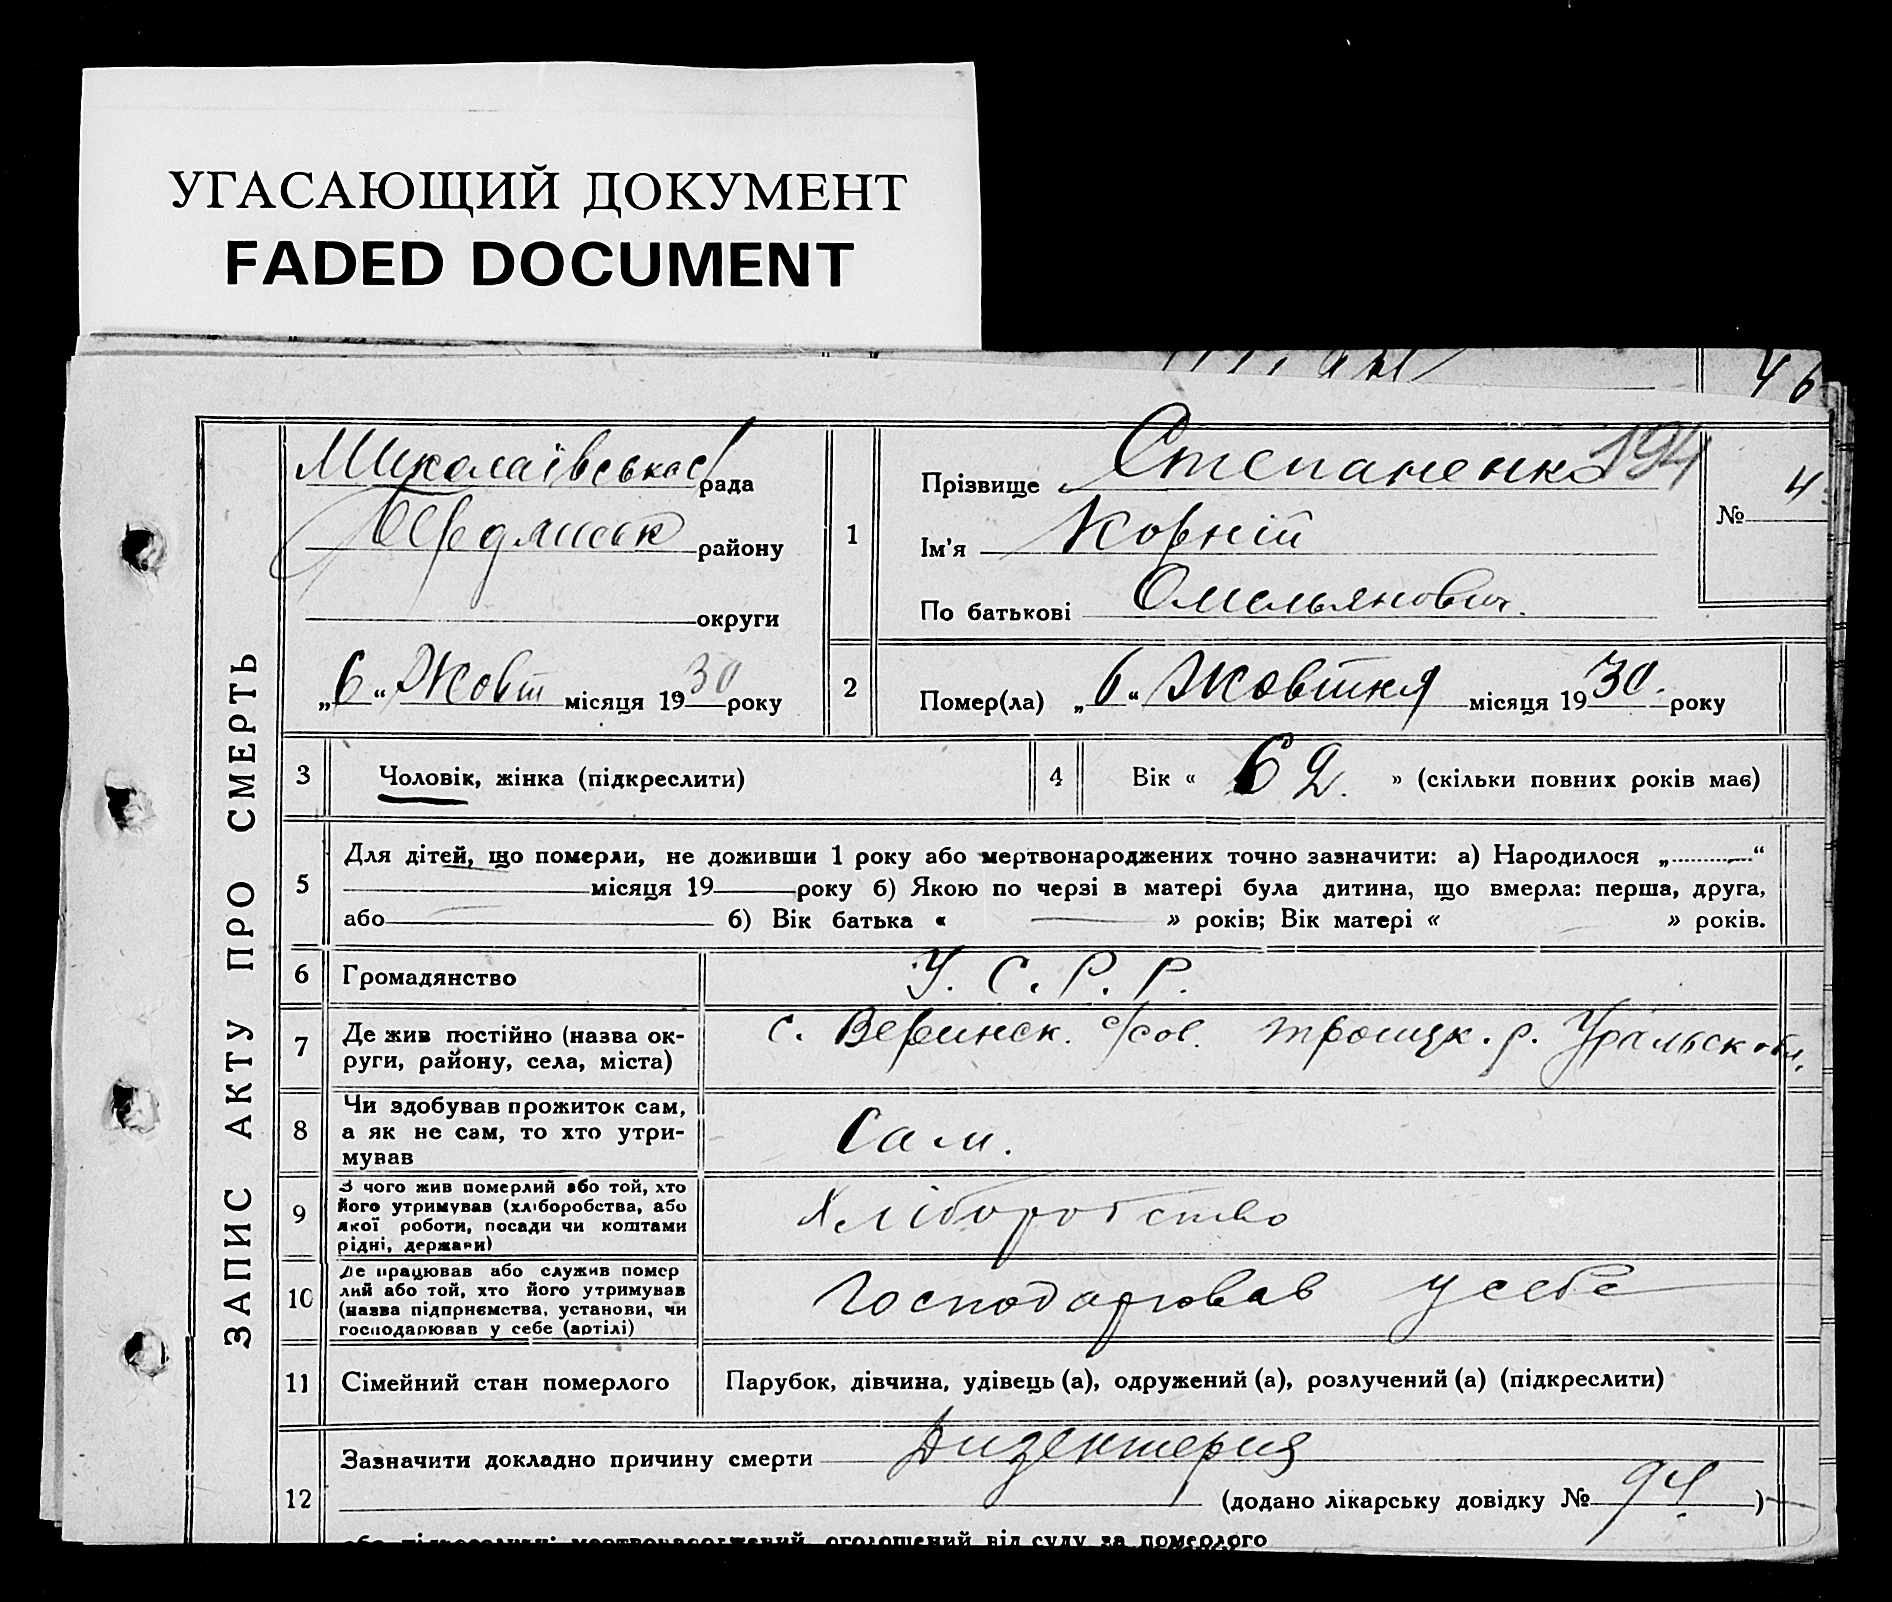 УГАСАЮЩИЙ ДОКУМЕНТ
FADED DOCUMENT
46
ЗАПИС АКТУ ПРО СМЕРТЬ
Миколаївська с/рада
Бердянськ району
округи
„6“ Жовт місяця 1930 року
1
Прізвище Степаненко
194
Ім'я Корній
По батькові Омельянович.
№ 4
2
Помер(ла) „6“ Жовтня місяця 1930. року
3 Чоловік, жінка (підкреслити)
4 Вік « 62. » (скільки повних років має)
5 Для дітей, що померли, не доживши 1 року або мертвонароджених точно зазначити: а) Народилося „ “
місяця 19 року б) Якою по черзі в матері була дитина, що вмерла: перша, друга,
або б) Вік батька « » років; Вік матері « » років.
6 Громадянство У.С.Р.Р.
7 Де жив постійно (назва ок-
руги, району, села, міста)
с. Веринск. с/сов. троицк. р. Уральск обл.
8 Чи здобував прожиток сам,
а як не сам, то хто утри-
мував
Сам.
9 З чого жив померлий або той, хто
його утримував (хліборобства, або
якої роботи, посади чи коштами
рідні, держави)
Хліборобство
10 Де працював або служив помер
лий або той, хто його утримував
(назва підприємства, установи, чи
господарював у себе (артілі)
Господарював у себе
11 Сімейний стан померлого Парубок, дівчина, удівець (а), одружений (а), розлучений (а) (підкреслити)
12 Зазначити докладно причину смерти Дизентерия
(додано лікарську довідку № 94)
оголошений від суду за померлого